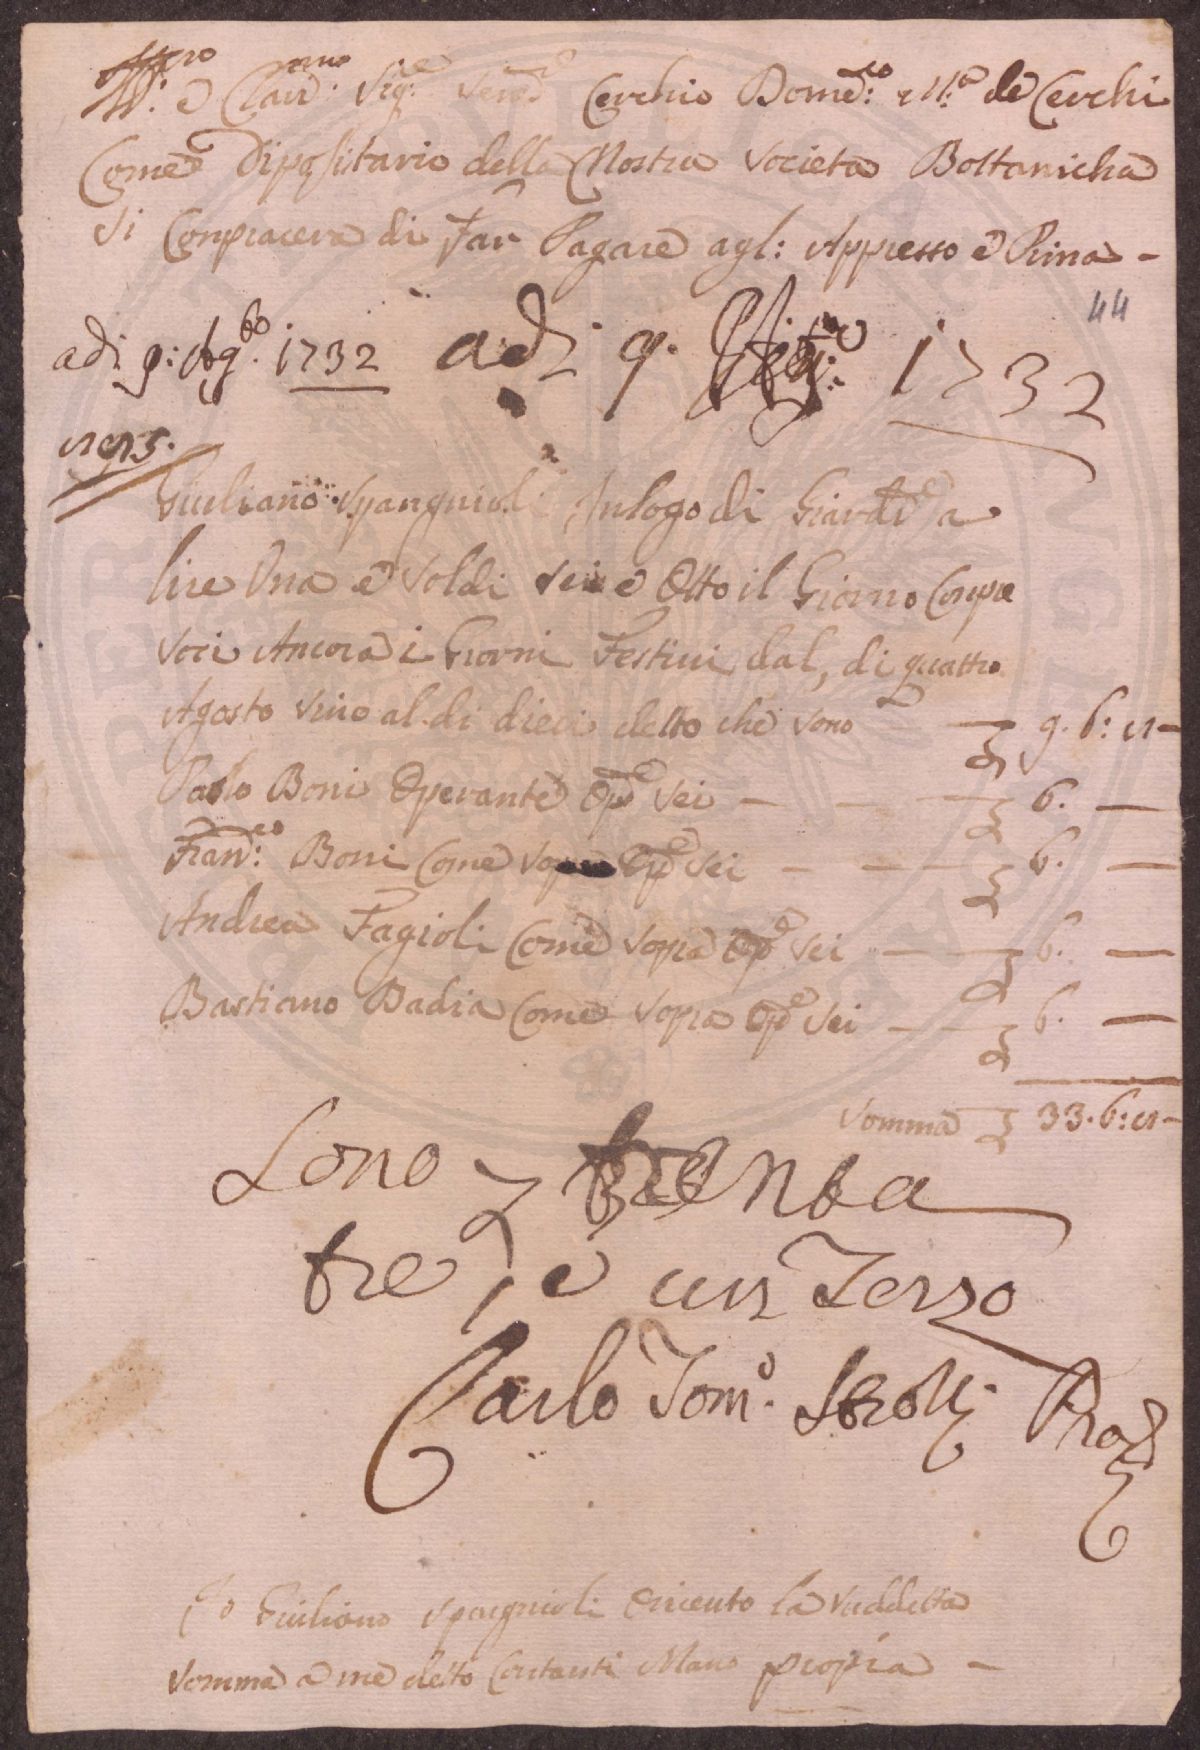 Ill: e Clar: Sig: Cerchio Dome:co de Cerchi
Come Dipositario della Nostra Societa Bottanicha
Si Conpiacera di Far Pagare agl: Appresso e Prima -
44
adi 9: Ag:to 1732 adi 9. 1732
N 95.
Giuliano Spangnioli Inlogo di Giard:e a
lire Una e Soldi Sei e Otto il Giorno Conpre
Soci Ancora i Giorni Festivi dal, di quattro
Agosto Sino al di dieci detto che Sono — 9. 6: 8 -
Paolo Boni Operante Op:e Sei — — — 6. —
Fran:co Boni Come Sopra Op:e Sei — — — 6. —
Andrea Fagioli Come Sopra Op:e Sei — — 6. —
Bastiano Badia Come Sopra Op:e Sei — — 6. —
Somma 33. 6: 8 -
Sono trenta
tre, e un Terzo
Carlo Tom:o Strozzi
Io Giuliano Spagnioli O riceuto la Suddetta
Somma a me detto Contanti Mano propia -